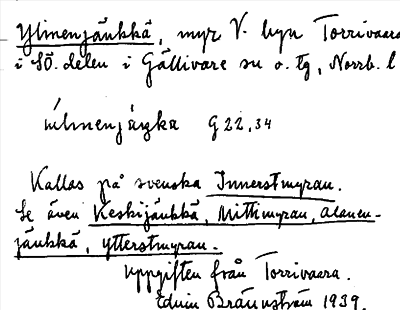 Ylinenjänkkä, myr V. byn Torrivaara
i SÖ. delen i Gällivare sn o. tg, Norrb. l
G 22,34
Kallas på svenska Innerstmyran.
Se även Keskijänkkä, Mittimyran, Alanen-
jänkkä, Ytterstmyran.
Uppgiften från Torrivaara.
Edvin Brännström 1939.